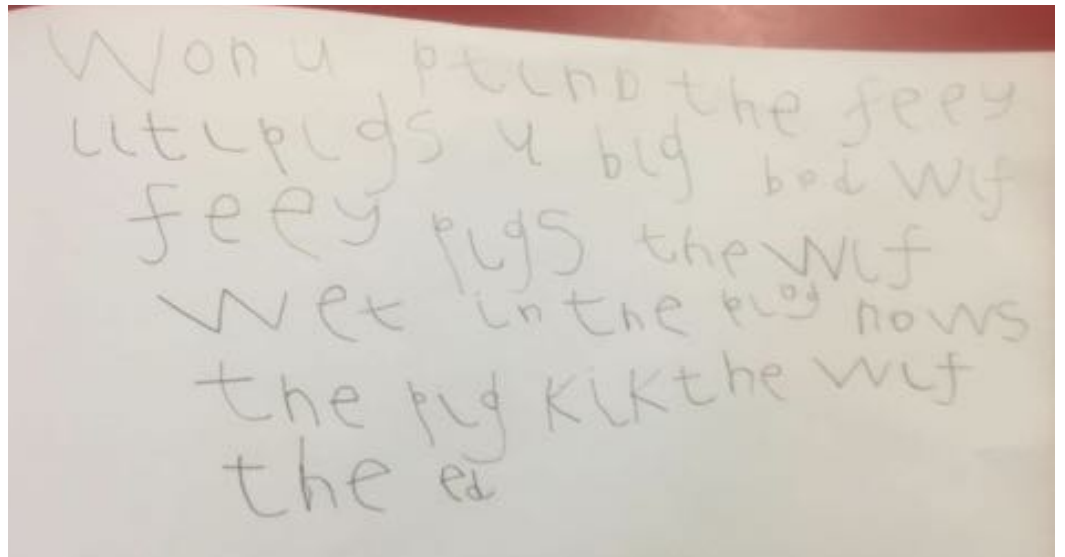 Won u ptinD the feey
litipigs u big bad Wlf
feey pigs the Wlf
Wet in the piog hows
the pig KiK the Wlf
the ed